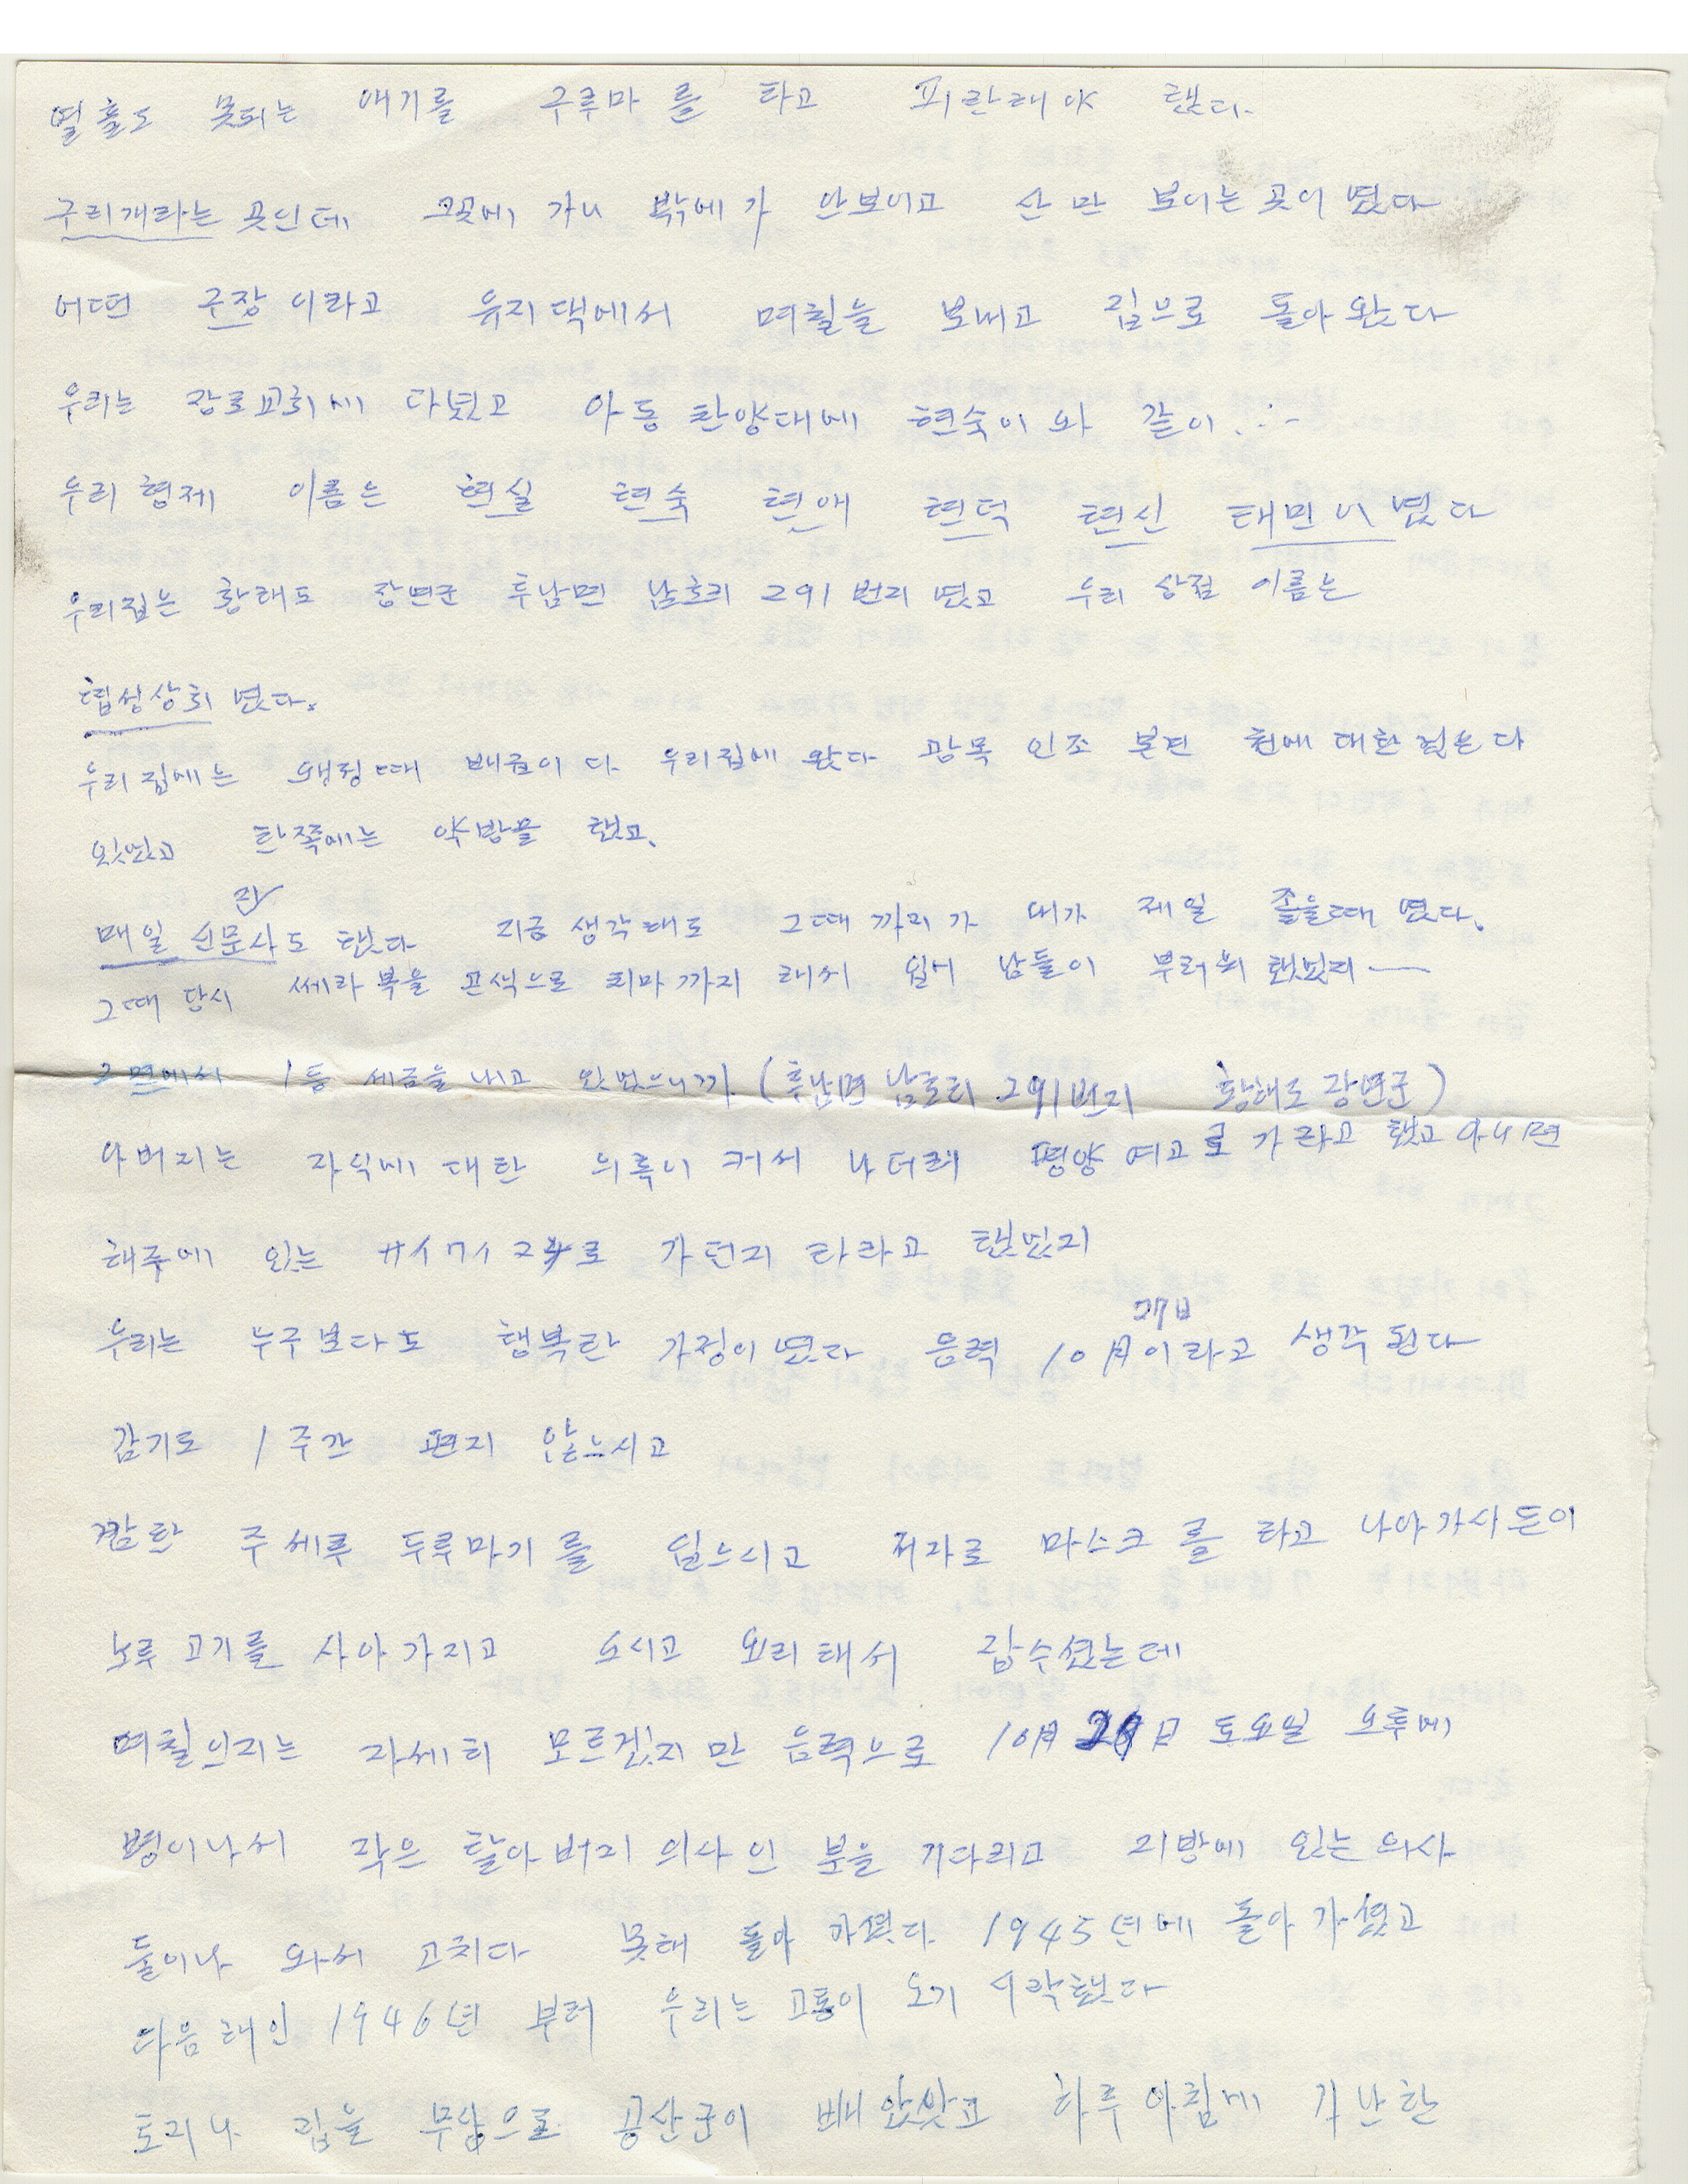 열흘도 못되는 애기를 구루마를 타고 피란해야 했다.
구리개라는 곳인데 그곳에 가니 밖에가 안보이고 산만 보이는 곳이 였다
어떤 구장이라고 유지댁에서 며칠늘 보내고 집으로 돌아왔다
우리는 장로교회에 다녔고 아동 찬양대에 현숙이와 같이...-
우리 형제 이름은 현실 현숙 현애 현덕 현신 태민이 였다
우리집는 황해도 장연군 후남면 남호리 291 번지 였고 우리 상점 이름는
협성상회 였다.
우리 집에는 왜정때 배급이 다 우리집에 왔다 광목 인조 본견 천에 대한 것는 다
있었고 한쪽에는 약방을 했고.
지
매일 신문사도 했다 지금 생각해도 그때 까지가 내가 제일 좋을때 였다.
그때 당시 쎄라복을 곤색으로 치마까지 해서 입어 남들이 부러워 했었지 —
그 면에서 1등 세금을 내고 있었으니까 (후남면 남호리 291번지 황해도 장연군)
아버지는 자식에 대한 의욕이 커서 나더러 평양 여고로 가라고 했고 아니면
해주에 있는 로 가던지 하라고 했었지
우리는 누구보다도 행복한 가정이 였다 음력 10月 27日이라고 생각된다
감기로 1주간 편지 않느시고
깜한 주세루 두루마기를 입느시고 마스크를 하고 나아가시든이
노루 고기를 사아가지고 오시고 요리해서 잡수셨는데
며칠인지는 자세히 모르겠지만 음력으로 10月 日 토요일 오후에
병이나서 작은 할아버지 의사인 분을 기다리고 지방에 있는 의사
둘이나 와서 고치다 못해 돌아 가셨다 1945년에 돌아가셨고
다음해인 1946년 부터 우리는 고통이 오기 시작했다
토지나 집늘 무상으로 공산군이 빼앗았고 하루아침에 가난한